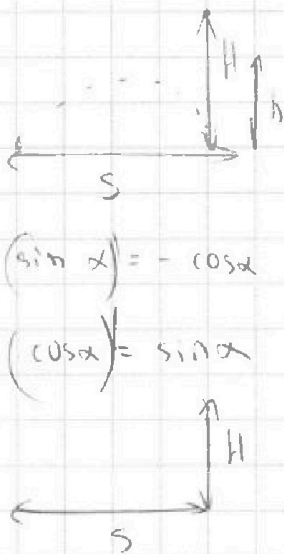 H
h
S
(sin α)' = - cosα
(cosα)' = sinα
H
S